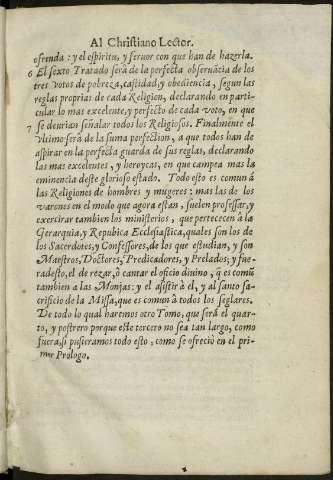 Al Christiano Lector.
ofrenda : y el espiritu, y feruor con que han de hazerla.
6 El sexto Tratado serâ de la perfecta obseruãcia de los
tres votos de pobreza, castidad, y obediencia, segun las
reglas proprias de cada Religion, declarando en parti-
cular lo mas excelente, y perfecto de cada voto, en que
se deurian señalar todos los Religiosos. Finalmente el
vltimo serâ de la suma perfection, a que todos han de
aspirar en la perfecta guarda de sus reglas, declarando
las mas excelentes, y heroycas, en que campea mas la
eminencia deste glorioso estado. Todo esto es comun â
las Religiones de hombres y mugeres : mas las de los
varones en el modo que agora estan, suelen professar, y
exercitar tambien los ministerios, que pertececen â la
Gerarquia, y Republica Ecclesiastica, quales son los de
los Sacerdotes, y Confessores, de los que estudian, y son
Maestros, Doctores, Predicadores, y Prelados; y fue-
ra desto, el de rezar, ò cantar el oficio diuino, q̃ es comũ
tambien a las Monjas: y el asistir â el, y al santo sa-
crificio de la Missa, que es comun â todos los seglares.
De todo lo qual haremos otro Tomo, que serâ el quar-
to, y postrero porque este tercero no sea tan largo, como
fuera, si pusieramos todo esto, como se ofrecio en el pri-
mer Prologo.